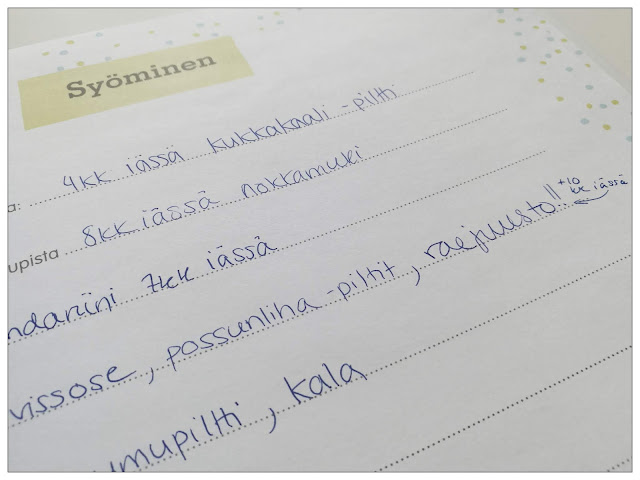 Syöminen
a: 4kk iässä kukkakaali -piltti
upista 8kk iässä nokkamuki
ndariini 7kk iässä
vissose, possunliha -piltit, raejuusto!! +10 kk iässä
umupiltti, kala